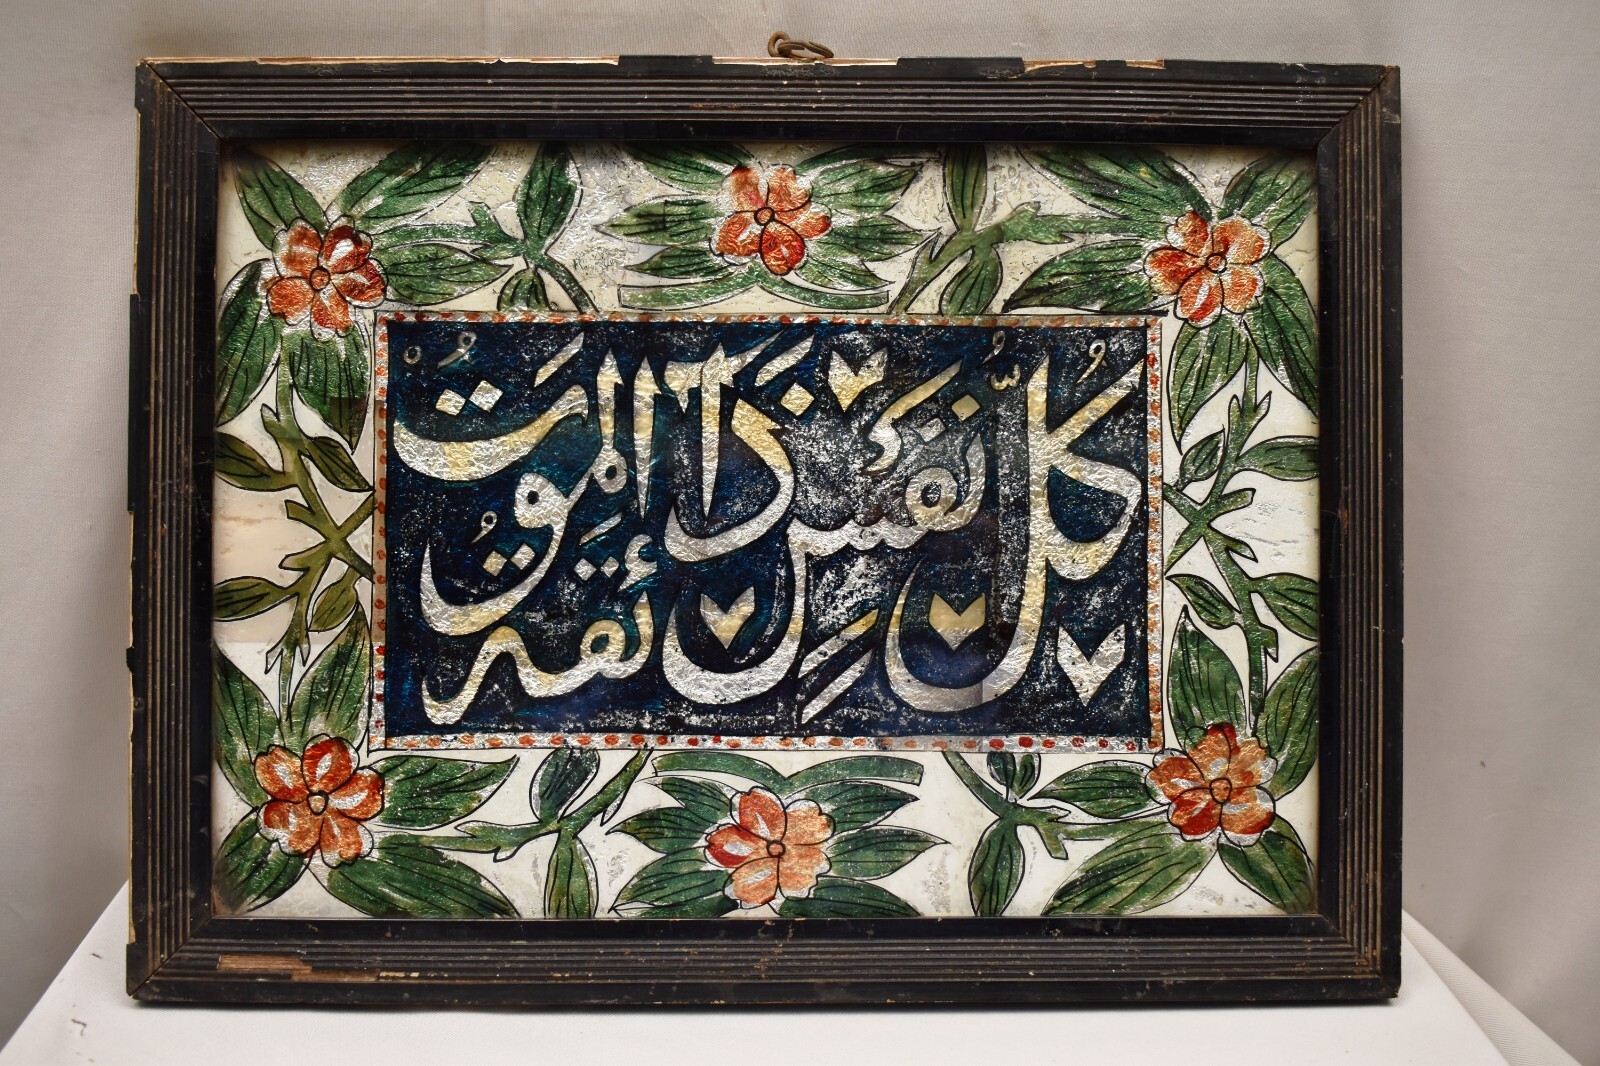 كُلُّ نَفْسٍ ذَآئِقَةُ الْمَوْتُ